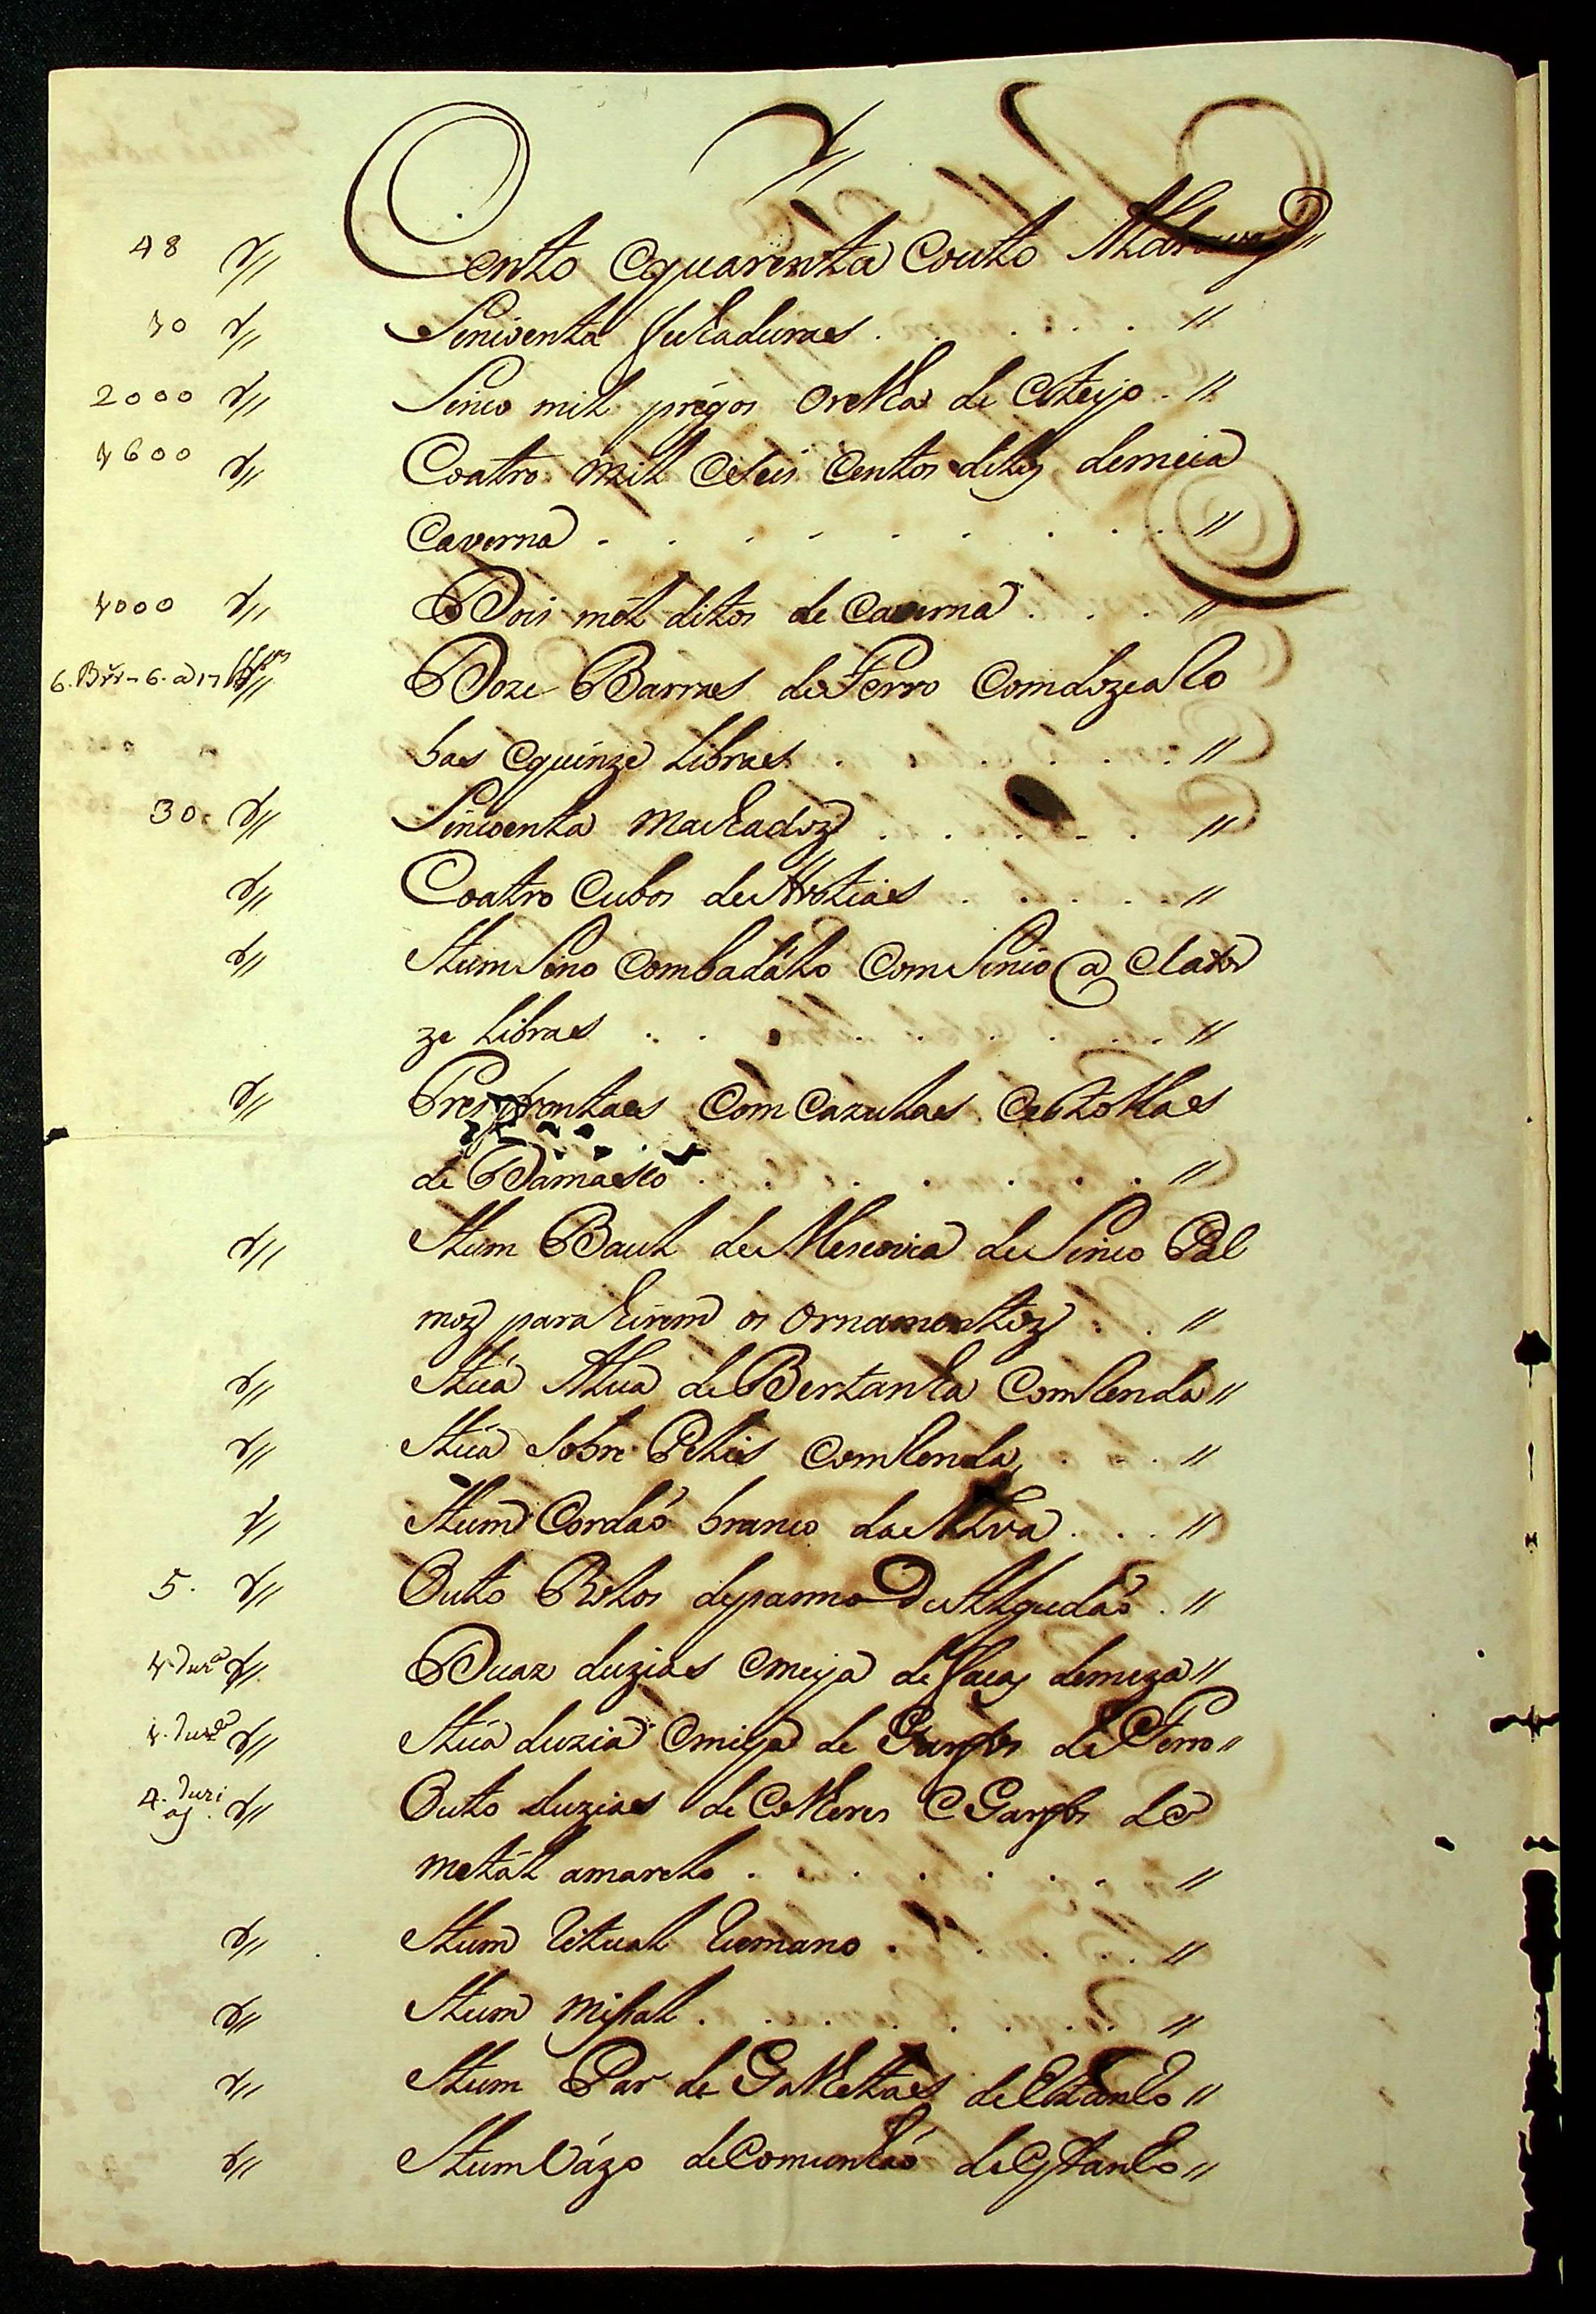 48 Cento equarenta eouto
40 Sincoenta fexaduras . . . . . "
2000 Sinco mil prégos orelha de Asteijo . "
4600 Coatro mil eSeis Centos ditos demeia
Caverna . . . . . . . . "
4000 Dois mil ditos de Caverna . . . "
6. Brr.s 6. @ 17 Doze Barras de Ferro Comdoze aRo
bas equinze Libras . . . . . . "
30. Sincoenta Machados . . . . . "
Coatro Cubos de Hostias . . . . "
Hum Sino Combadálo Com Sinco @ eCator
ze Libras . . . . . . . . "
Tres frontaes Com Cazulas eEstollas
de Damasco . . . . . . . "
Hum Baul de Moscovia de Sinco Pal
mos para hirem os Ornamentos . . "
Húa Alva de Bertanha ComRenda "
Húa Sobre Pelis ComRenda . . . "
Hum Cordaõ branco da Alva . . . "
5. Outo Rolos depanno De Algudaõ . "
4. duz.as Duaz duzias emeija de facas demeza "
1. duz.a Húa duzia emeija de Garfos de Ferro "
4. duzi
as Outo duzias de Colheres e Garfos de
metál amarelo . . . . . . . "
Hum Ritual Romano . . . . . "
Hum Missal . . . . . . . . "
Hum Par de Galhetas de Estanho "
Hum Vázo de Comunhaõ de Estanho "